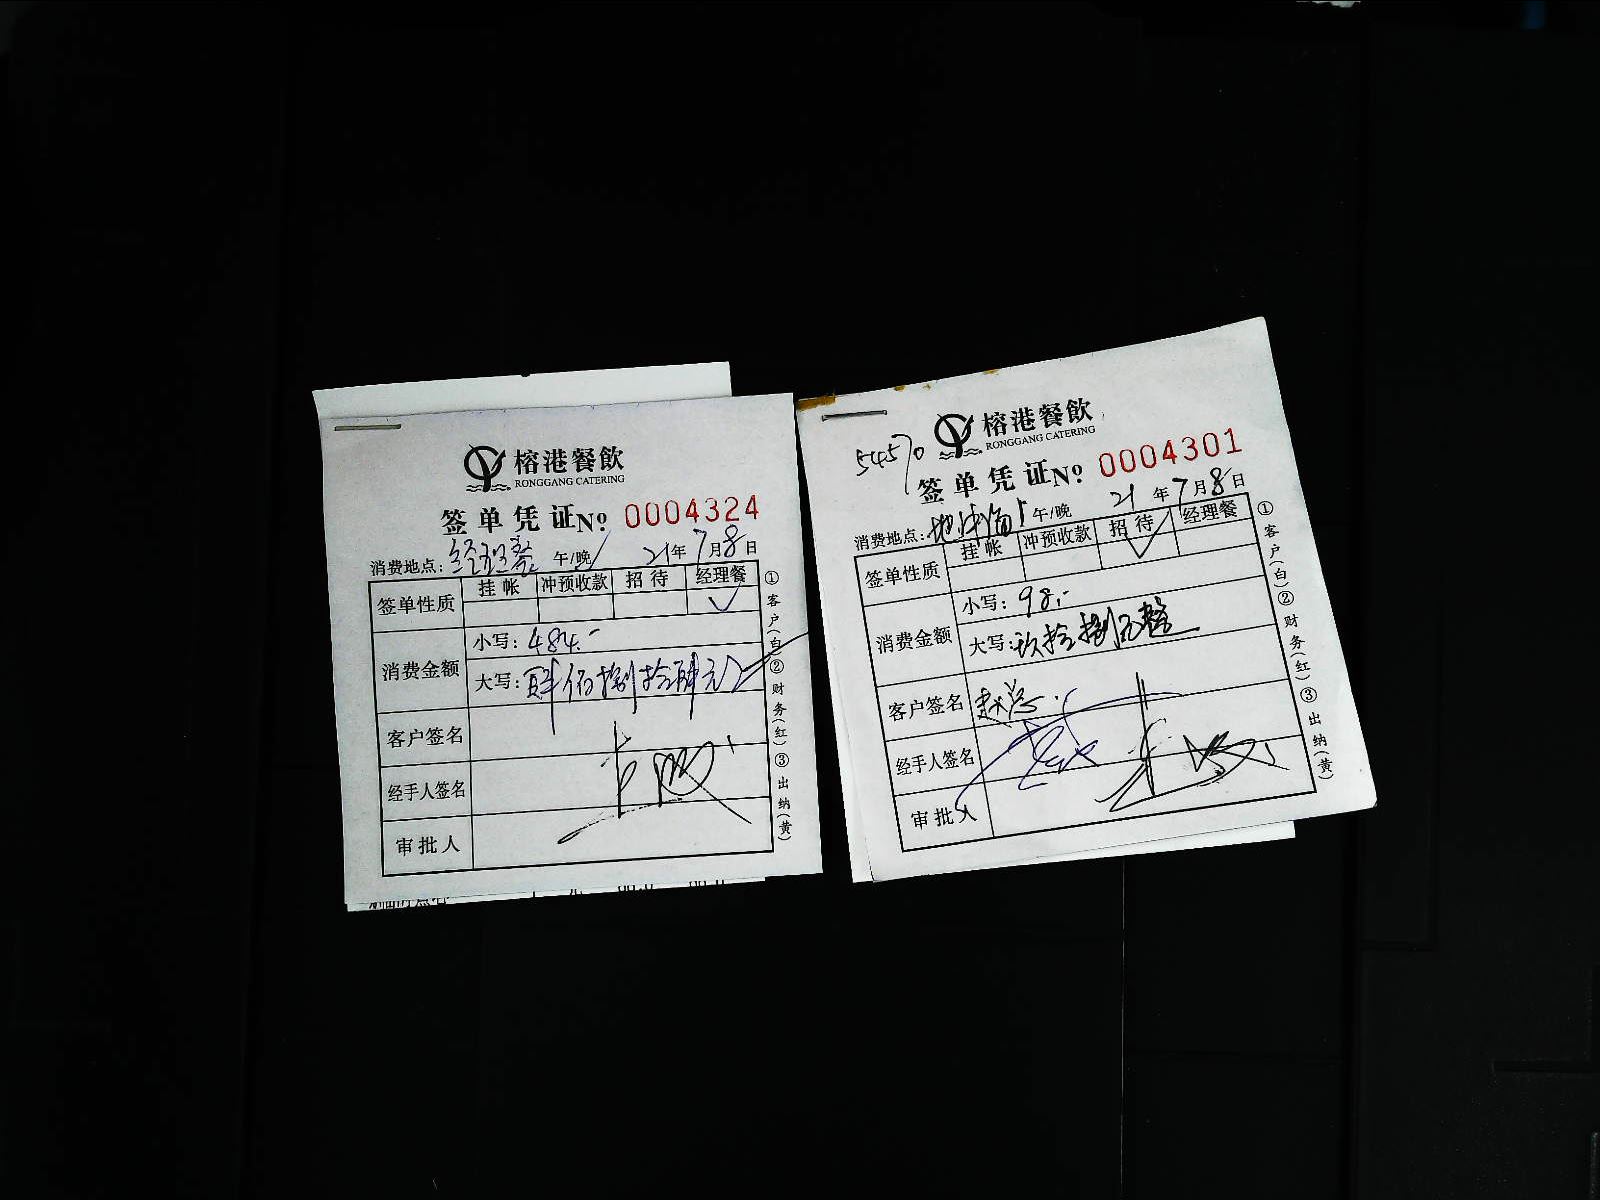 榕港餐飲
RONGGANG CATERING
签单凭证№ 0004324
消费地点：经理餐 午/晚 21年7月8日
签单性质 挂帐 冲预收款 招待 经理餐
消费金额
小写：484.-
大写：肆佰捌拾肆元
客户签名
经手人签名
审批人
①客户(白)②财务(红)③出纳(黄)
榕港餐飲
RONGGANG CATERING
54570
签单凭证№ 0004301
消费地点：地中海 午/晚 21年7月8日
签单性质 挂帐 冲预收款 招待 经理餐
消费金额
小写：98.-
大写：玖拾捌元整
客户签名 赵总
经手人签名
审批人
①客户(白)②财务(红)③出纳(黄)